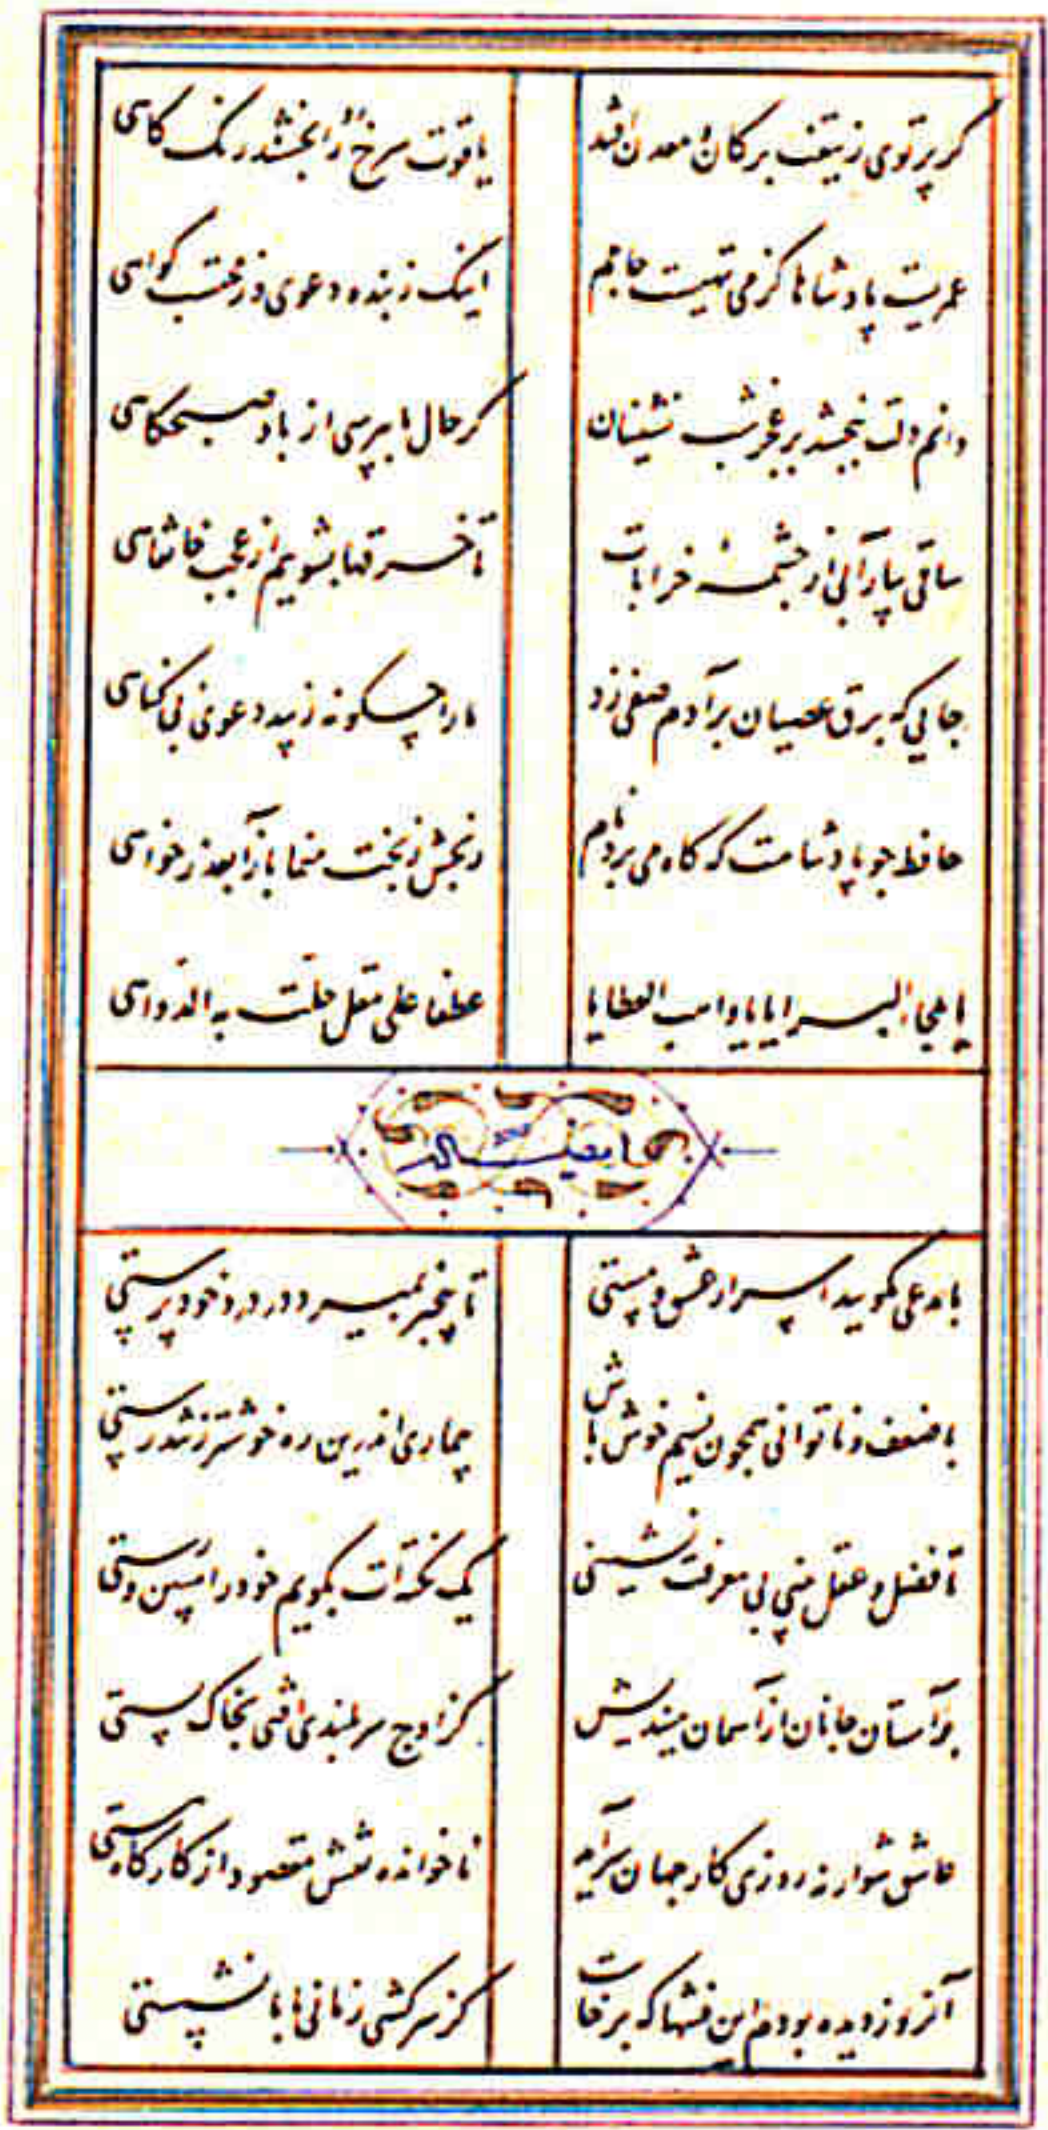 گر پرتوی ز تیغت بر کان و معدن افتد
یاقوت سرخ رو را بخشند رنگ کاهی
عمریست پادشاها کز می تهیست جامم
اینک ز بنده دعوی وز محتسب گواهی
دانم دلت ببخشد بر عجز شب نشینان
گر حال ما بپرسی از باد صبحگاهی
ساقی بیار آبی از چشمه خرابات
تا خرقها بشوییم از عجب خانقاهی
جایی که برق عصیان بر آدم صفی زد
ما را چگونه زیبد دعوی بی گناهی
حافظ چو پادشاهت گه گاه می برد نام
رنجش ز بخت منما بازآ بعذرخواهی
یا ملجأ البرایا یا واهب العطایا
عطفا علی مقل حلت به الدواهی
ایضا له
با مدعی مگویید اسرار عشق و مستی
تا بیخبر بمیرد در درد خودپرستی
با ضعف و ناتوانی همچون نسیم خوش باش
بیماری اندرین ره خوشتر ز تندرستی
تا فضل و عقل بینی بی معرفت نشینی
یک نکته ات بگویم خود را مبین و رستی
بر آستان جانان از آسمان میندیش
کز اوج سربلندی افتی بخاک پستی
عاشق شو ار نه روزی کار جهان سرآید
ناخوانده نقش مقصود از کارگاه هستی
آنروز دیده بودم این فتنها که برخاست
کز سرکشی زمانی با ما نمی نشستی